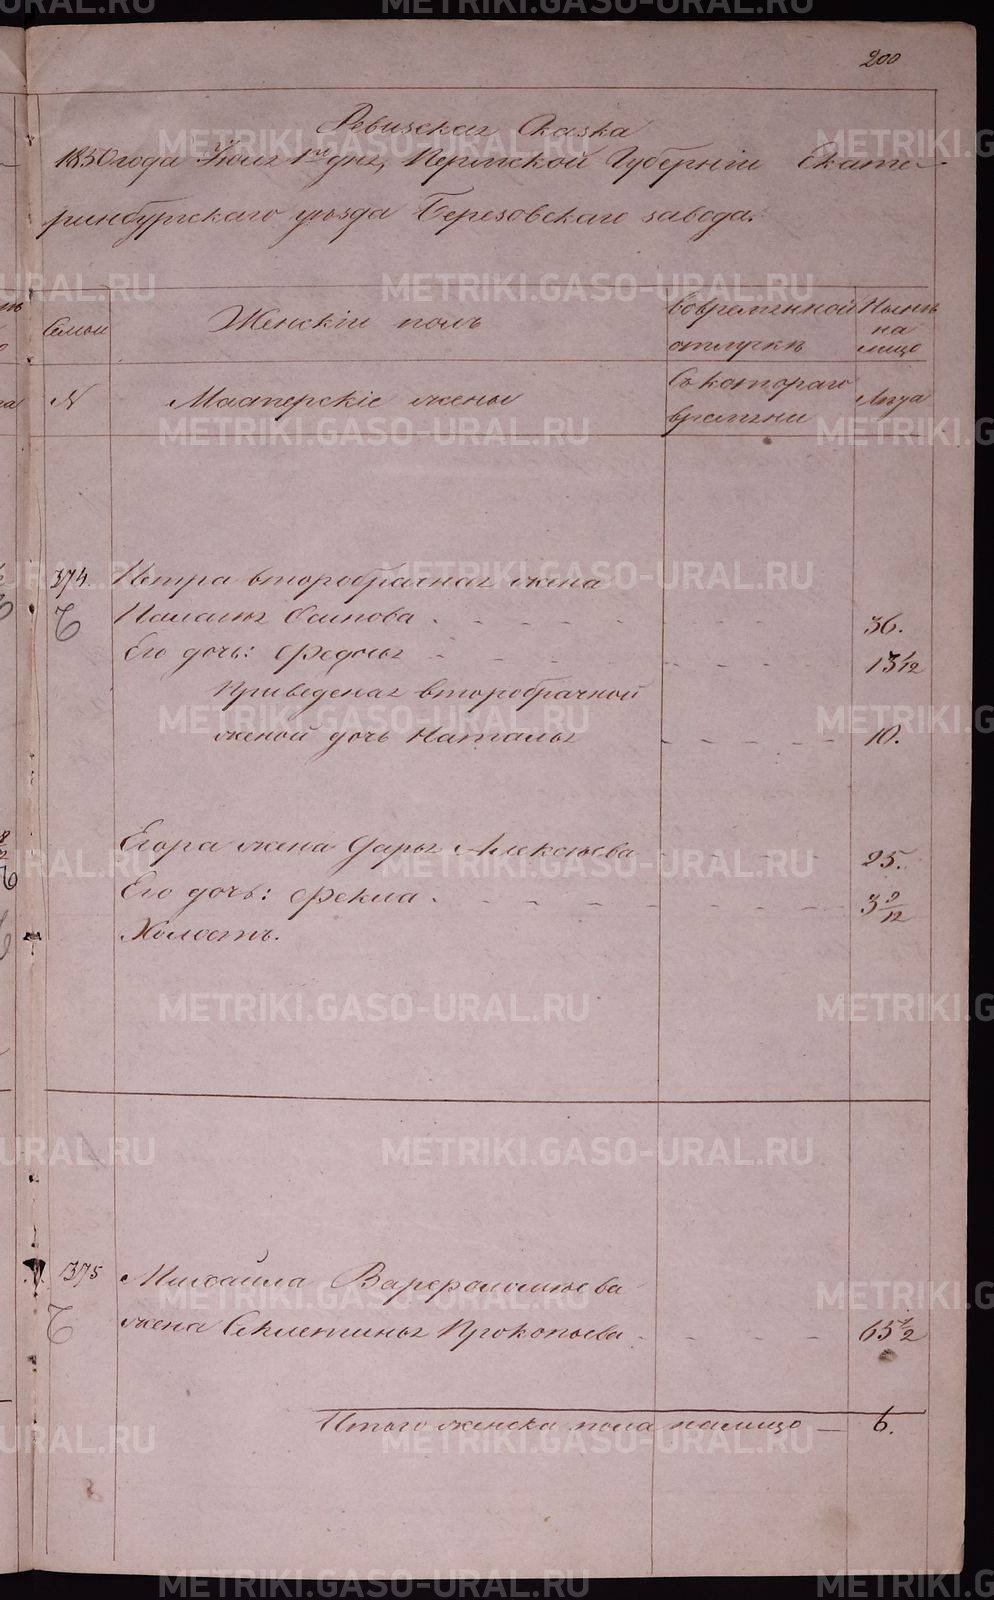 200
Ревизская Сказка
1850 года Июля 1го дня, Пермской Губернiи Екате-
ринбургскаго уѣзда Березовскаго завода.
Семьи
Женскiй полъ
Во временной отлучкѣ
Нынѣ на лицо
N
Мастерскiе жены
Съ котораго времени
Лѣта
374. Петра второбрачная жена
Палагѣя Осипова 36.
Его дочь: Федосья 13 1/12
Приведеная второбрачной
женой дочь Наталья 10.
Егора жена Дарья Алексѣева 25.
Его дочь: Фекла 3 9/12
Холостъ.
375 Михайла Варфоломѣева
жена Секлетинья Прокопьева 65 1/2
Итого женска пола налицо — 6.
METRIKI.GASO-URAL.RU